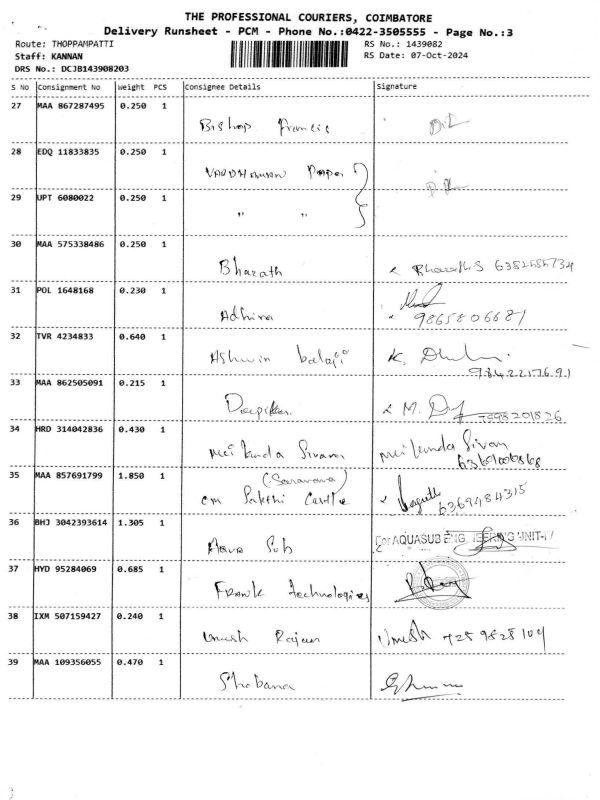 THE PROFESSIONAL COURIERS, COIMBATORE
Delivery Runsheet - PCM - Phone No.:0422-3505555 - Page No.:3
Route: THOPPAMPATTI RS No.: 1439082
Staff: KANNAN RS Date: 07-Oct-2024
DRS No.: DCJB143908203
S No Consignment No Weight PCS Consignee Details Signature
27 MAA 867287495 0.250 1
Bishop Francis
28 EDQ 11833835 0.250 1
VARDHAMAN Paper
29 UPT 6080022 0.250 1
" "
30 MAA 575338486 0.250 1
Bharath Bharath.S
31 POL 1648168 0.230 1
Adhira 9865806687
32 TVR 4234833 0.640 1
Ashwin balaji K.
9842217691
33 MAA 862505091 0.215 1
Deepika M. 7598201826
34 HRD 314042836 0.430 1
Meikanda Sivam Meikanda Sivam
35 MAA 857691799 1.850 1
(Saravana)
cm Sakthi Castle 6369484315
36 BHJ 3042393614 1.305 1
For AQUASUB ENGINEERING UNIT-IV
Aqua Sub
37 HYD 95284069 0.685 1
Frank technologies
38 IXM 507159427 0.240 1
Umesh Rajan Umesh 7259828109
39 MAA 109356055 0.470 1
Shobana